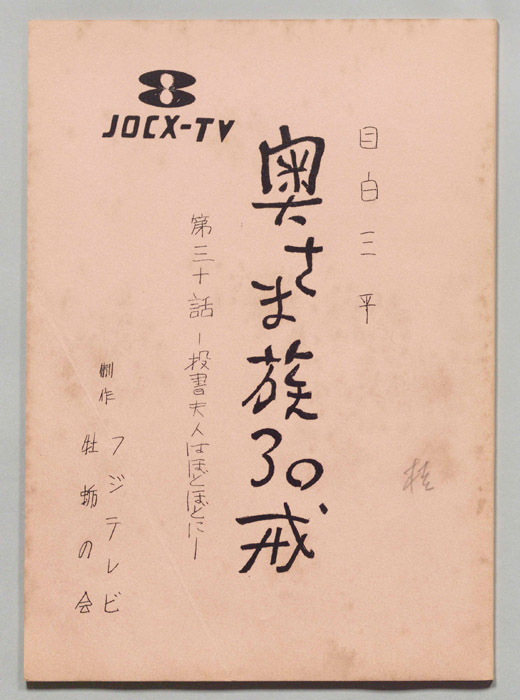 JOCX-TV
目白三平
奥さま族30戒
第三十話 ー投書夫人はほどほどにー
制作 フジテレビ
牡蛎の会